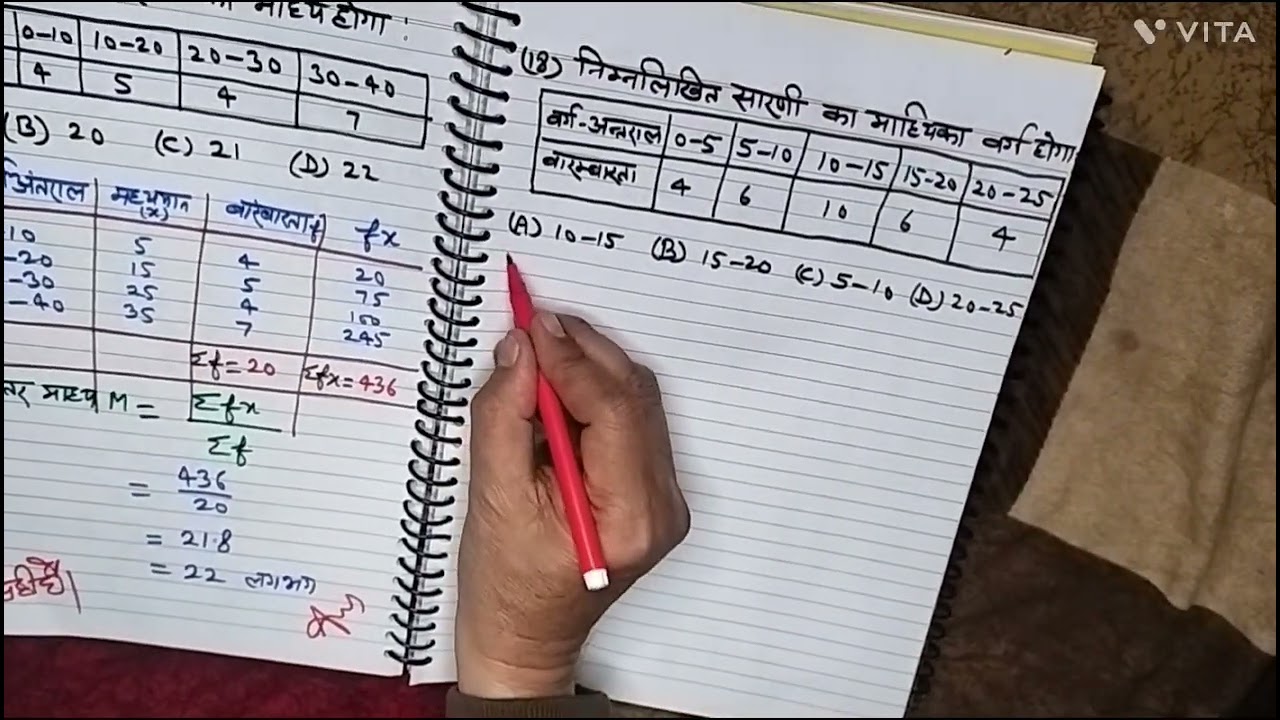 माध्य होगा :
0-10 10-20 20-30 30-40
4 5 4 7
(B) 20 (C) 21 (D) 22
अंतराल मध्यमान (x) बारंबारता f fx
10 5 4 20
-20 15 5 75
-30 25 4 100
-40 35 7 245
Σf = 20 Σfx = 436
माध्य M = Σfx
Σf
= 436
20
= 21.8
= 22 लगभग
(18) निम्नलिखित सारणी का माध्यिका वर्ग होगा
वर्ग-अन्तराल 0-5 5-10 10-15 15-20 20-25
बारम्बारता 4 6 10 6 4
(A) 10-15 (B) 15-20 (C) 5-10 (D) 20-25
VITA